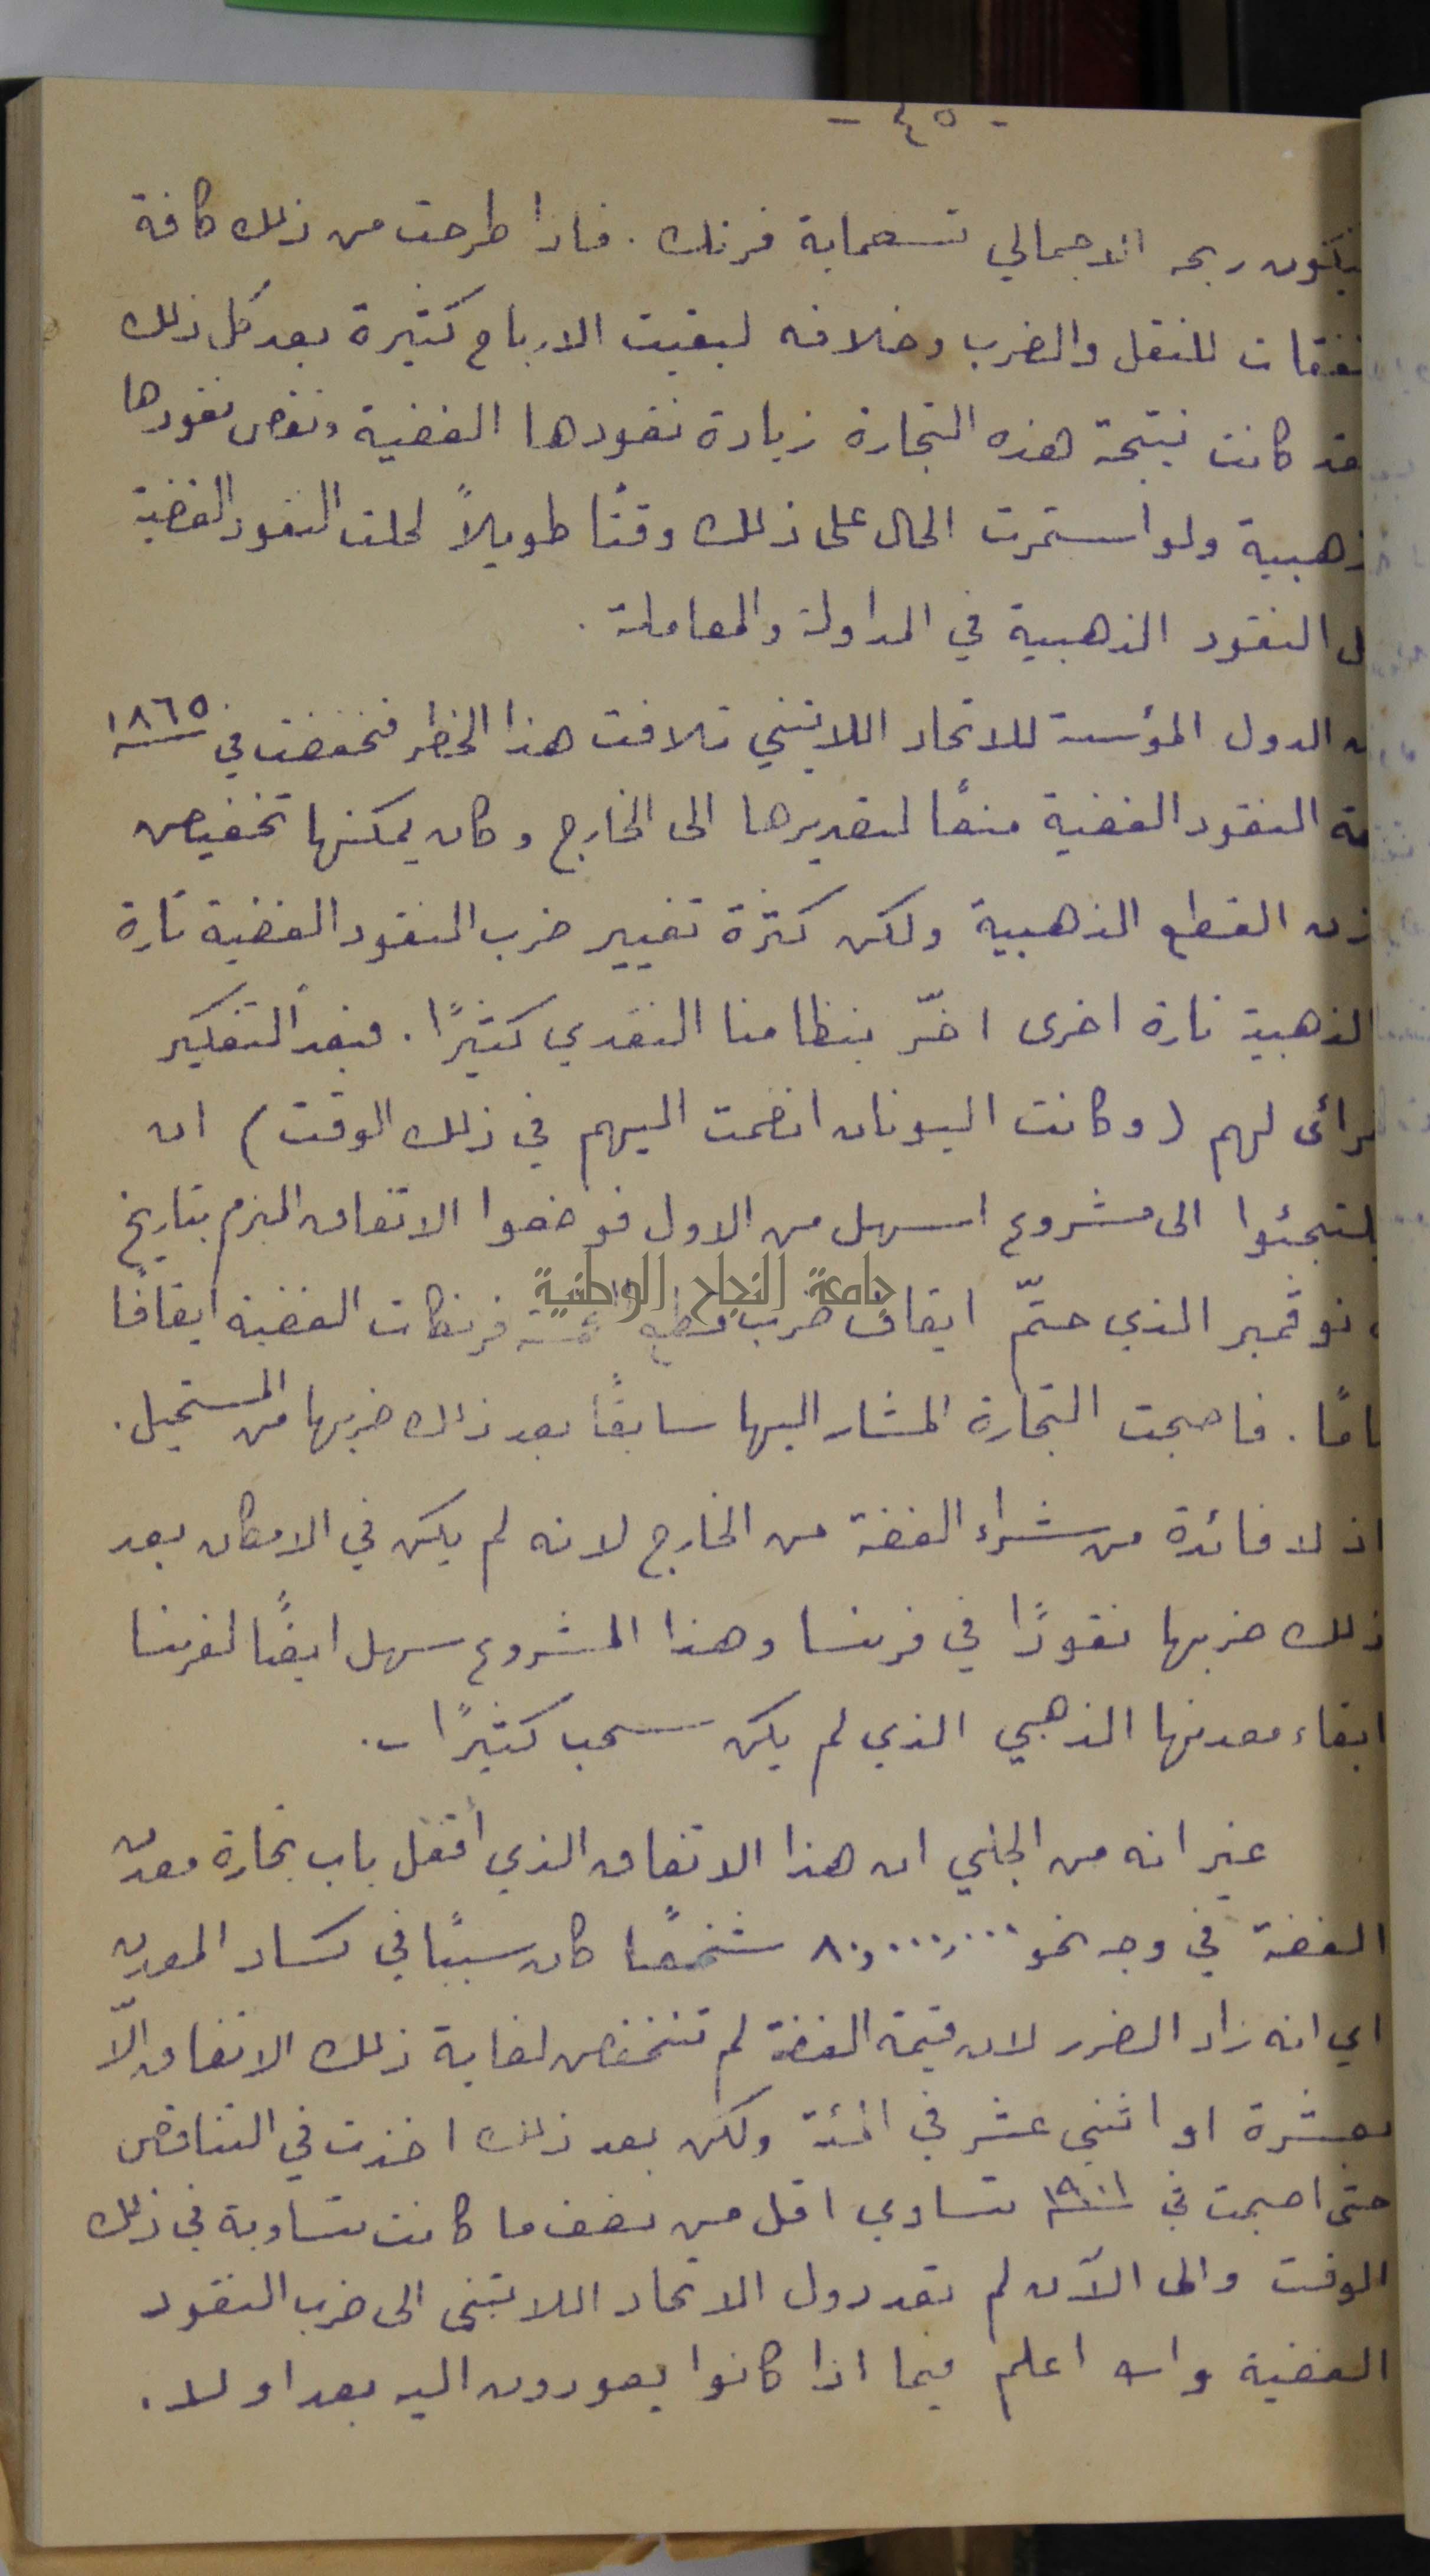 - ٤٥ -
فيكون ربحه الاجمالي تسعماية فرنك . فاذا طرحت من ذلك كافة
نفقات للنقل والضرب وخلافه لبقيت الارباح كثيرة بعد كل ذلك
قد كانت نتيجة هذه التجارة زيادة نقودها الفضية ونقص نقودها
ذهبية ولو استمرت الحال على ذلك وقتًا طويلاً لحلت النقود الفضية
ل النقود الذهبية في المداولة والمعاملة .
ن الدول المؤسسة للاتحاد اللاتيني تلافت هذا الخطر فخفضت في ١٨٦٥
مة النقود الفضية منعًا لتصديرها الى الخارج وكان يمكنها تخفيض
زن القطع الذهبية ولكن كثرة تغيير ضرب النقود الفضية تارة
الذهبية تارة اخرى اضرّ بنظامنا النقدي كثيرًا . فبعد التفكير
ترائى لهم (وكانت اليونان انضمت اليهم في ذلك الوقت) ان
يلتجئوا الى مشروع اسهل من الاول فوضعوا الاتفاق المبرم بتاريخ
جامعة النجاح الوطنية
نوڤمبر الذي حتّم ايقاف ضرب قطع الخمسة فرنكات الفضية ايقافًا
تامًا . فاصبحت التجارة المشار اليها سابقًا بعد ذلك ضربها من المستحيل .
اذ لا فائدة من شراء الفضة من الخارج لانه لم يكن في الامكان بعد
ذلك ضربها نقودًا في فرنسا وهذا المشروع سهل ايضًا لفرنسا
ابقاء معدنها الذهبي الذي لم يكن سحب كثيرًا .
غير انه من الجلي ان هذا الاتفاق الذي أقفل باب تجارة معدن
الفضة في وجه نحو ٨٠,٠٠٠,٠٠٠ شخصًا كان سببًا في كساد المعدن
اي انه زاد الضرر لان قيمة الفضة لم تنخفض لغاية ذلك الاتفاق الّا
بعشرة او اثني عشر في المئة ولكن بعد ذلك اخذت في التناقص
حتى اصبحت في ١٩٠١ تساوي اقل من نصف ما كانت تساويه في ذلك
الوقت والى الآن لم تعد دول الاتحاد اللاتيني الى ضرب النقود
الفضية والله اعلم فيما اذا كانوا يعودون اليه بعد او لا .